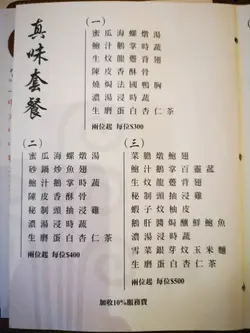 真味套餐
(一)
蜜瓜海螺燉湯
鮑汁鵝掌時蔬
生炆龍躉背翅
陳皮香酥骨
燒焗法國鴨胸
濃湯浸時蔬
生磨蛋白杏仁茶
兩位起 每位$300
(二)
蜜瓜海螺燉湯
砂鍋炒魚翅
鮑汁鵝掌時蔬
陳皮香酥骨
秘制頭抽浸雞
濃湯浸時蔬
生磨蛋白杏仁茶
兩位起 每位$400
(三)
菜膽燉鮑翅
鮑汁鵝掌百靈蔬
生炆龍躉背翅
秘制頭抽浸雞
蝦子炆柚皮
鵝肝醬焗釀鮮鮑魚
濃湯浸時蔬
雪菜銀芽炆玉米麵
生磨蛋白杏仁茶
兩位起 每位$500
加收10%服務費